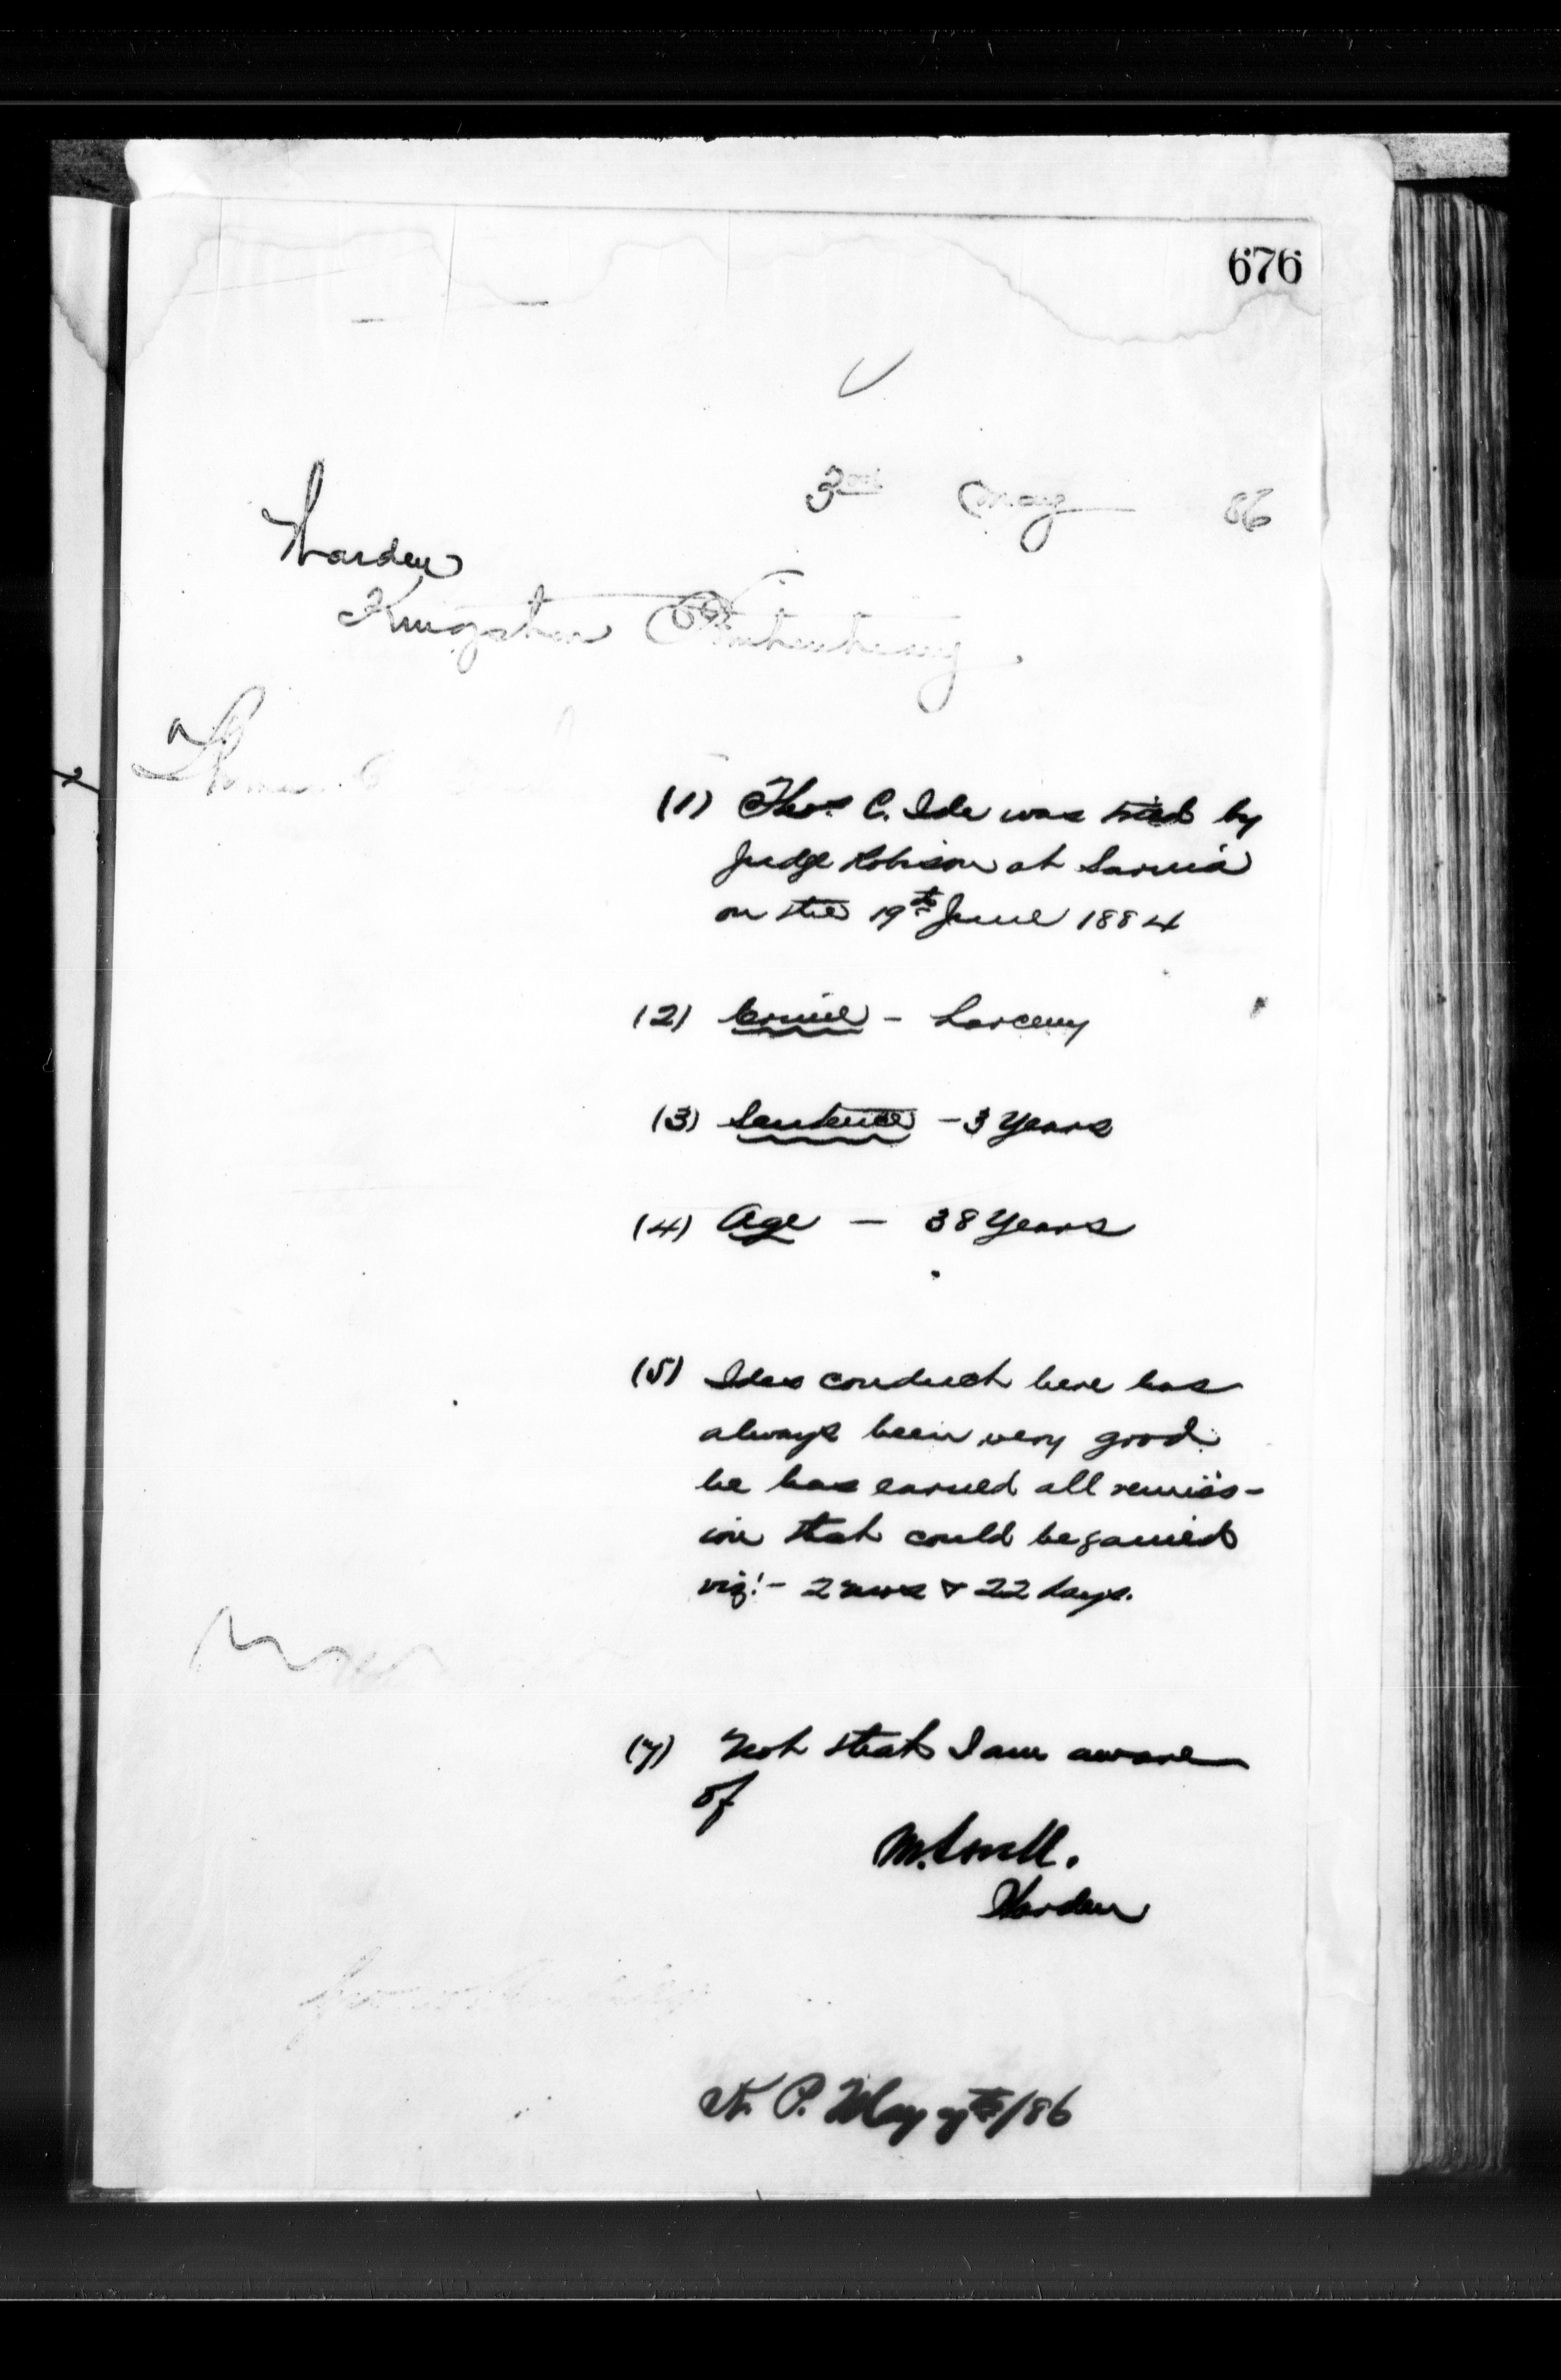 676
3rd May 86
Warden
Kingston Penitentiary.
Thomas C
(1) Thos. C. Ide was tried by
Judge Robison at Sarnia
on the 19th June 1884
(2) Crime - Larceny
(3) Sentence - 3 Years
(4) Age - 38 Years
(5) Ides conduct here has
always been very good
he has earned all remiss-
ion that could be gained
viz:- 2 mos & 22 days.
(7) Not that I am aware
of
M. Lavell.
Warden
K. P. May 7th/86